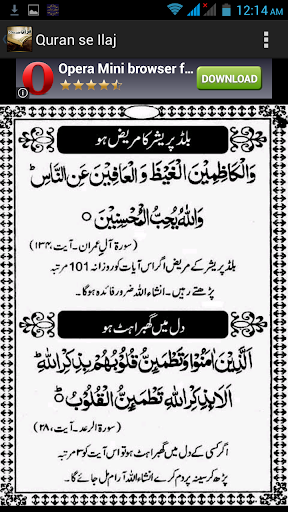 12:14 AM
Quran se Ilaj
Opera Mini browser f...
DOWNLOAD
بلڈ پریشر کا مریض ہو
وَالْكَاظِمِيْنَ الْغَيْظَ وَالْعَافِيْنَ عَنِ النَّاسِ ؕ
وَاللّٰهُ يُحِبُّ الْمُحْسِنِيْنَ ○
(سورۃ آلِ عمران۔آیت،۱۳۴)
بلڈ پریشر کے مریض اگر اس آیات کو روزانہ 101 مرتبہ
پڑھتے رہیں۔ انشاء اللہ ضرور فائدہ ہوگا۔
دل میں گھبراہٹ ہو
اَلَّذِيْنَ اٰمَنُوْا وَتَطْمَئِنُّ قُلُوْبُهُمْ بِذِكْرِ اللّٰهِ ؕ
اَلَا بِذِكْرِ اللّٰهِ تَطْمَئِنُّ الْقُلُوْبُ ؕ ○
(سورۃ الرعد۔آیت،۲۸)
اگر کسی کے دل میں گھبراہٹ ہو تو اس آیت کو ۳ مرتبہ
پڑھ کر سینہ پر دم کرے انشاء اللہ آرام مل جائے گا۔